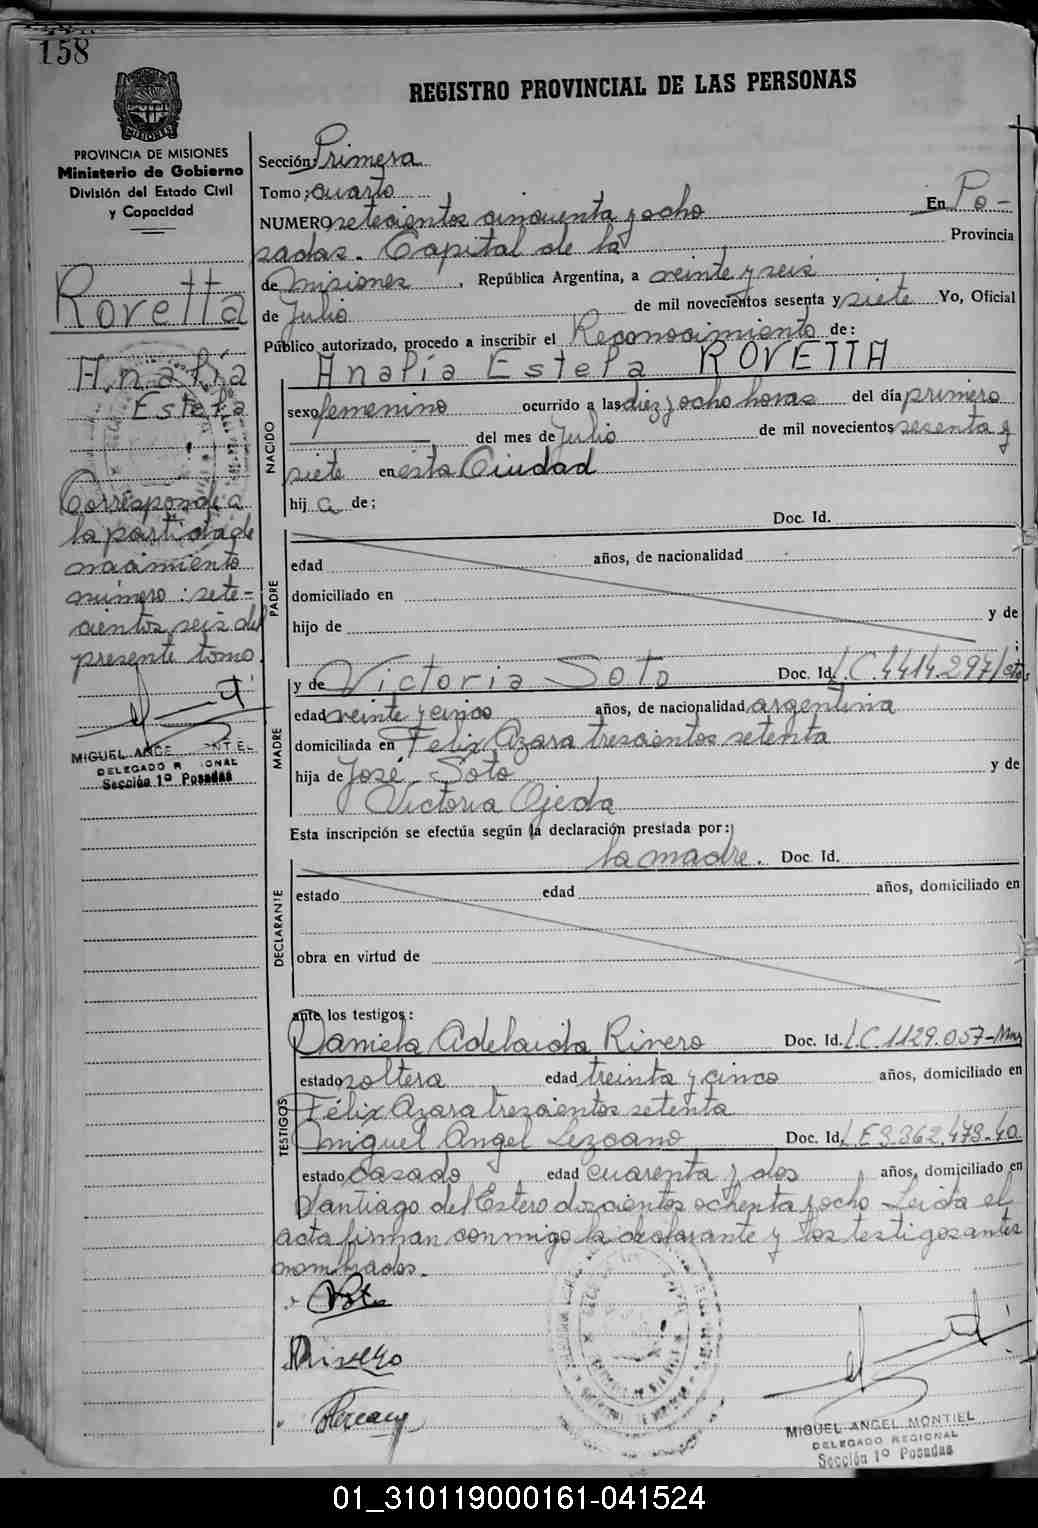 158
REGISTRO PROVINCIAL DE LAS PERSONAS
MISIONES
PROVINCIA DE MISIONES
Ministerio de Gobierno
División del Estado Civil
y Capacidad
Rovetta
Analía
Estela
Corresponde a
la partida de
nacimiento
número: sete-
cientos seis del
presente tomo.
MIGUEL ANGEL MONTIEL
DELEGADO REGIONAL
Sección 1º Posadas
Sección: Primera
Tomo; cuarto
NUMERO setecientos cincuenta y ocho En Po-
sadas. Capital de la Provincia
de Misiones, República Argentina, a veinte y seis
de Julio de mil novecientos sesenta y siete Yo, Oficial
Público autorizado, procedo a inscribir el Reconocimiento de:
NACIDO
Analía Estela ROVETTA
sexo femenino ocurrido a las diez y ocho horas del día primero
, del mes de Julio de mil novecientos sesenta y
siete en esta Ciudad
hij a de;
PADRE
Doc. Id.
edad años, de nacionalidad
domiciliado en
hijo de y de
MADRE
y de Victoria Soto Doc. Id. L.C. 4414.297/ctes
edad veinte y cinco años, de nacionalidad argentina
domiciliada en Felix Azara trescientos setenta
hija de José Soto y de
Victoria Ojeda
Esta inscripción se efectúa según la declaración prestada por:
la madre. Doc. Id.
DECLARANTE
estado edad años, domiciliado en
obra en virtud de
ante los testigos:
TESTIGOS
Daniela Adelaida Rivero Doc. Id. L.C. 1129.057-Mns
estado soltera edad treinta y cinco años, domiciliado en
Félix Azara trescientos setenta
Miguel Angel Lezcano Doc. Id. L.E 3.362.473.40
estado casado edad cuarenta y dos años, domiciliado en
Santiago del Estero doscientos ochenta y ocho Leida el
acta firman conmigo la declarante y los testigos antes
nombrados.
Soto
Rivero
MIGUEL ANGEL MONTIEL
DELEGADO REGIONAL
Sección 1º Posadas
01_310119000161-041524